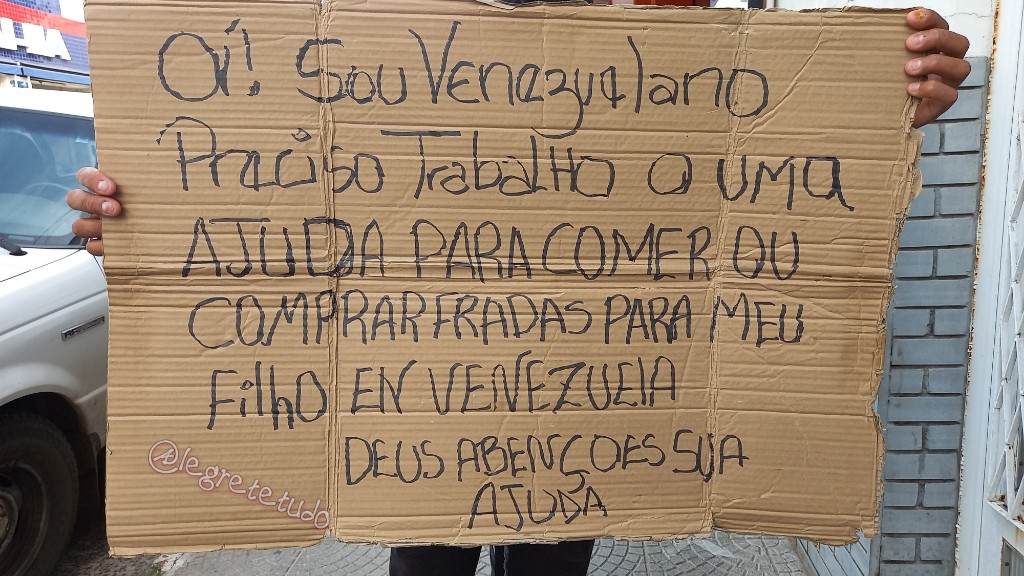 Oi! Sou Venezuelano
Preciso Trabalho o uma
AJUDA PARA COMER OU
COMPRAR FRADAS PARA MEU
Filho EN VENEZUELA
DEUS ABENÇOES SUA
AJUDA
@legretetudo